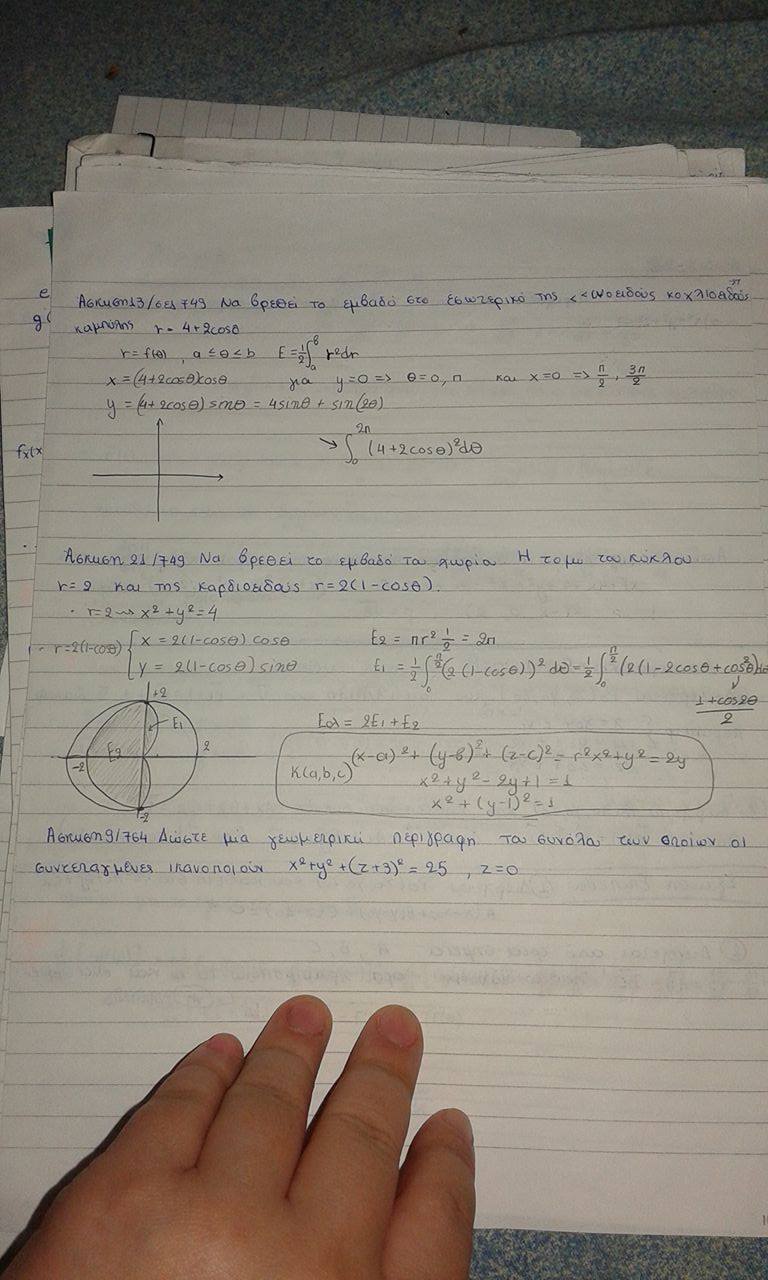 Άσκηση 13/σελ 749 Να βρεθεί το εμβαδό στο εσωτερικό της <<ωοειδούς κοχλιοειδούς>>
καμπύλης r = 4+2cosθ
r = f(θ) , a ≤ θ ≤ b E = 1/2 ∫_a^b r²dr
x = (4+2cosθ)cosθ για y=0 => θ=0, π και x=0 => π/2 , 3π/2
y = (4+2cosθ) sinθ = 4sinθ + sin(2θ)
fx(x
→ ∫_0^{2π} (4+2cosθ)²dθ
Άσκηση 21/749 Να βρεθεί το εμβαδό τα χωρία. Η τομή του κύκλου
r=2 και της καρδιοειδούς r=2(1-cosθ).
· r=2 ⇝ x²+y²=4
· r=2(1-cosθ) { x = 2(1-cosθ) cosθ E2 = πr² 1/2 = 2π
y = 2(1-cosθ) sinθ E1 = 1/2 ∫_0^{π/2} (2(1-cosθ))² dθ = 1/2 ∫_0^{π/2} (2(1-2cosθ+cos²θ)dθ
1+cos2θ/2
+2
E1
E2
-2
2
-2
Εολ = 2E1+E2
K(a,b,c) (x-a)²+(y-b)²+(z-c)² = r² x²+y²=2y
x²+y²-2y+1=1
x²+(y-1)²=1
Άσκηση 9/764 Δώστε μία γεωμετρική περιγραφή τα συνόλα των οποίων οι
συντεταγμένες ικανοποιούν x²+y²+(z+3)²=25 , z=0